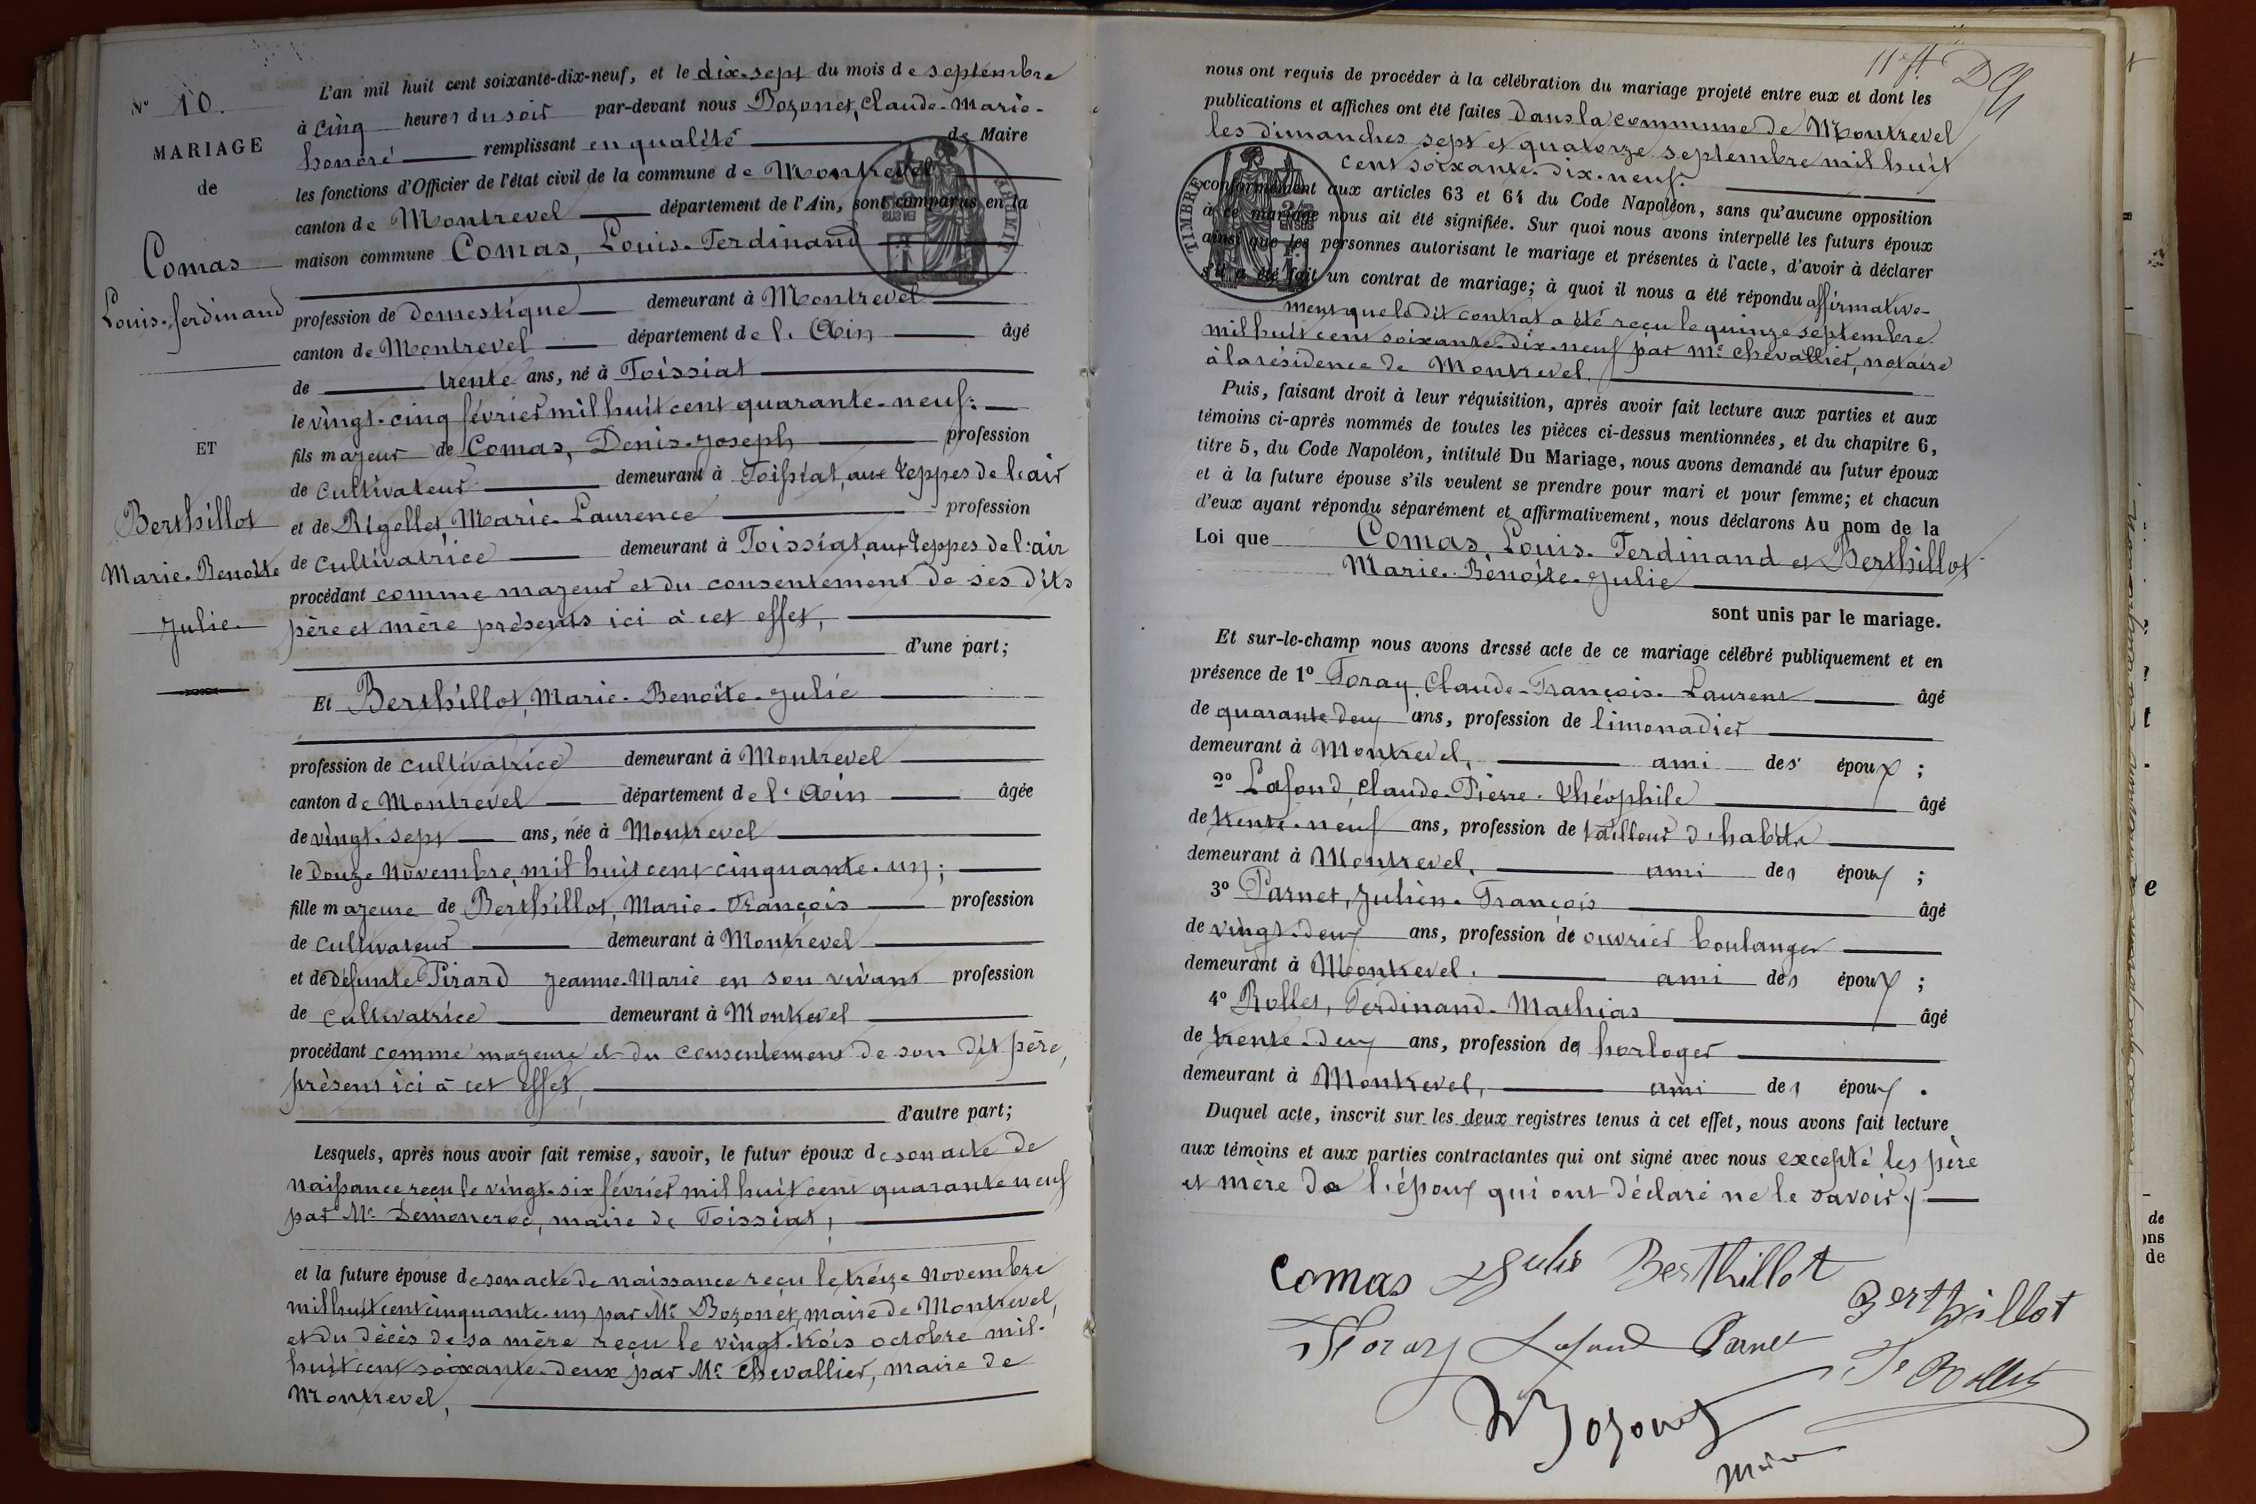 N° 10.
MARIAGE
de
Comas
Louis-ferdinand
ET
Berthillot
Marie-Benoîte
Julie.
L'an mil huit cent soixante-dix-neuf, et le dix-sept du mois de septembre
à cinq heures du soir par-devant nous Bozonet, Claude-Marie-
honoré remplissant en qualité de Maire
les fonctions d'Officier de l'état civil de la commune de Montrevel
canton de Montrevel département de l'Ain, sont comparus en la
maison commune Comas, Louis-Ferdinand
profession de domestique demeurant à Montrevel
canton de Montrevel département de l'Ain âgé
de trente ans, né à Toissiat
le vingt-cinq février mil huit cent quarante-neuf;
fils majeur de Comas, Denis-Joseph profession
de cultivateur demeurant à Toissiat, aux teppes de l'air
et de Rigollet Marie-Laurence profession
de cultivatrice demeurant à Toissiat, aux teppes de l'air
procédant comme majeur et du consentement de ses dits
père et mère présents ici à cet effet,
d'une part;
Et Berthillot, Marie-Benoîte-Julie
profession de cultivatrice demeurant à Montrevel
canton de Montrevel département de l'Ain âgée
de vingt-sept ans, née à Montrevel
le douze Novembre mil huit cent cinquante-un;
fille majeure de Berthillot, Marie-François profession
de cultivateur demeurant à Montrevel
et de défunte Pirard Jeanne-Marie en son vivant profession
de cultivatrice demeurant à Montrevel
procédant comme majeure et du consentement de son dit père,
présent ici à cet effet,
d'autre part;
Lesquels, après nous avoir fait remise, savoir, le futur époux de son acte de
naissance reçu le vingt-six février mil huit cent quarante neuf
par Mr maire de Toissiat;
et la future épouse de son acte de naissance reçu le treize Novembre
mil huit cent cinquante-un par Mr Bozonet, maire de Montrevel,
et du décès de sa mère reçu le vingt-trois octobre mil-
huit cent soixante-deux par Mr Chevallier, maire de
Montrevel,
nous ont requis de procéder à la célébration du mariage projeté entre eux et dont les
publications et affiches ont été faites dans la commune de Montrevel
les dimanches sept et quatorze septembre mil huit
cent soixante-dix-neuf.
conformément aux articles 63 et 64 du Code Napoléon, sans qu'aucune opposition
à ce mariage nous ait été signifiée. Sur quoi nous avons interpellé les futurs époux
ainsi que les personnes autorisant le mariage et présentes à l'acte, d'avoir à déclarer
s'il a été fait un contrat de mariage; à quoi il nous a été répondu affirmative-
ment que le dit contrat a été reçu le quinze septembre
mil huit cent soixante-dix-neuf par Me Chevallier, notaire
à la résidence de Montrevel.
Puis, faisant droit à leur réquisition, après avoir fait lecture aux parties et aux
témoins ci-après nommés de toutes les pièces ci-dessus mentionnées, et du chapitre 6,
titre 5, du Code Napoléon, intitulé Du Mariage, nous avons demandé au futur époux
et à la future épouse s'ils veulent se prendre pour mari et pour femme; et chacun
d'eux ayant répondu séparément et affirmativement, nous déclarons Au nom de la
Loi que Comas, Louis-Ferdinand et Berthillot
Marie-Benoîte-Julie
sont unis par le mariage.
Et sur-le-champ nous avons dressé acte de ce mariage célébré publiquement et en
présence de 1° Foray, Claude-François-Laurent âgé
de quarante deux ans, profession de limonadier
demeurant à Montrevel, ami des époux;
2° Lafond, Claude-Pierre-Théophile âgé
de trente-neuf ans, profession de tailleur d'habits
demeurant à Montrevel, ami des époux;
3° Parnet, Julien-François âgé
de vingt-deux ans, profession de ouvrier boulanger
demeurant à Montrevel, ami des époux;
4° Rollet, Ferdinand-Mathias âgé
de trente-deux ans, profession de horloger
demeurant à Montrevel, ami des époux.
Duquel acte, inscrit sur les deux registres tenus à cet effet, nous avons fait lecture
aux témoins et aux parties contractantes qui ont signé avec nous excepté les père
et mère de l'époux qui ont déclaré ne le savoir
comas Julie Berthillot
Berthillot
Foray Lafond Parnet
F Rollet
Bozonet
Maire